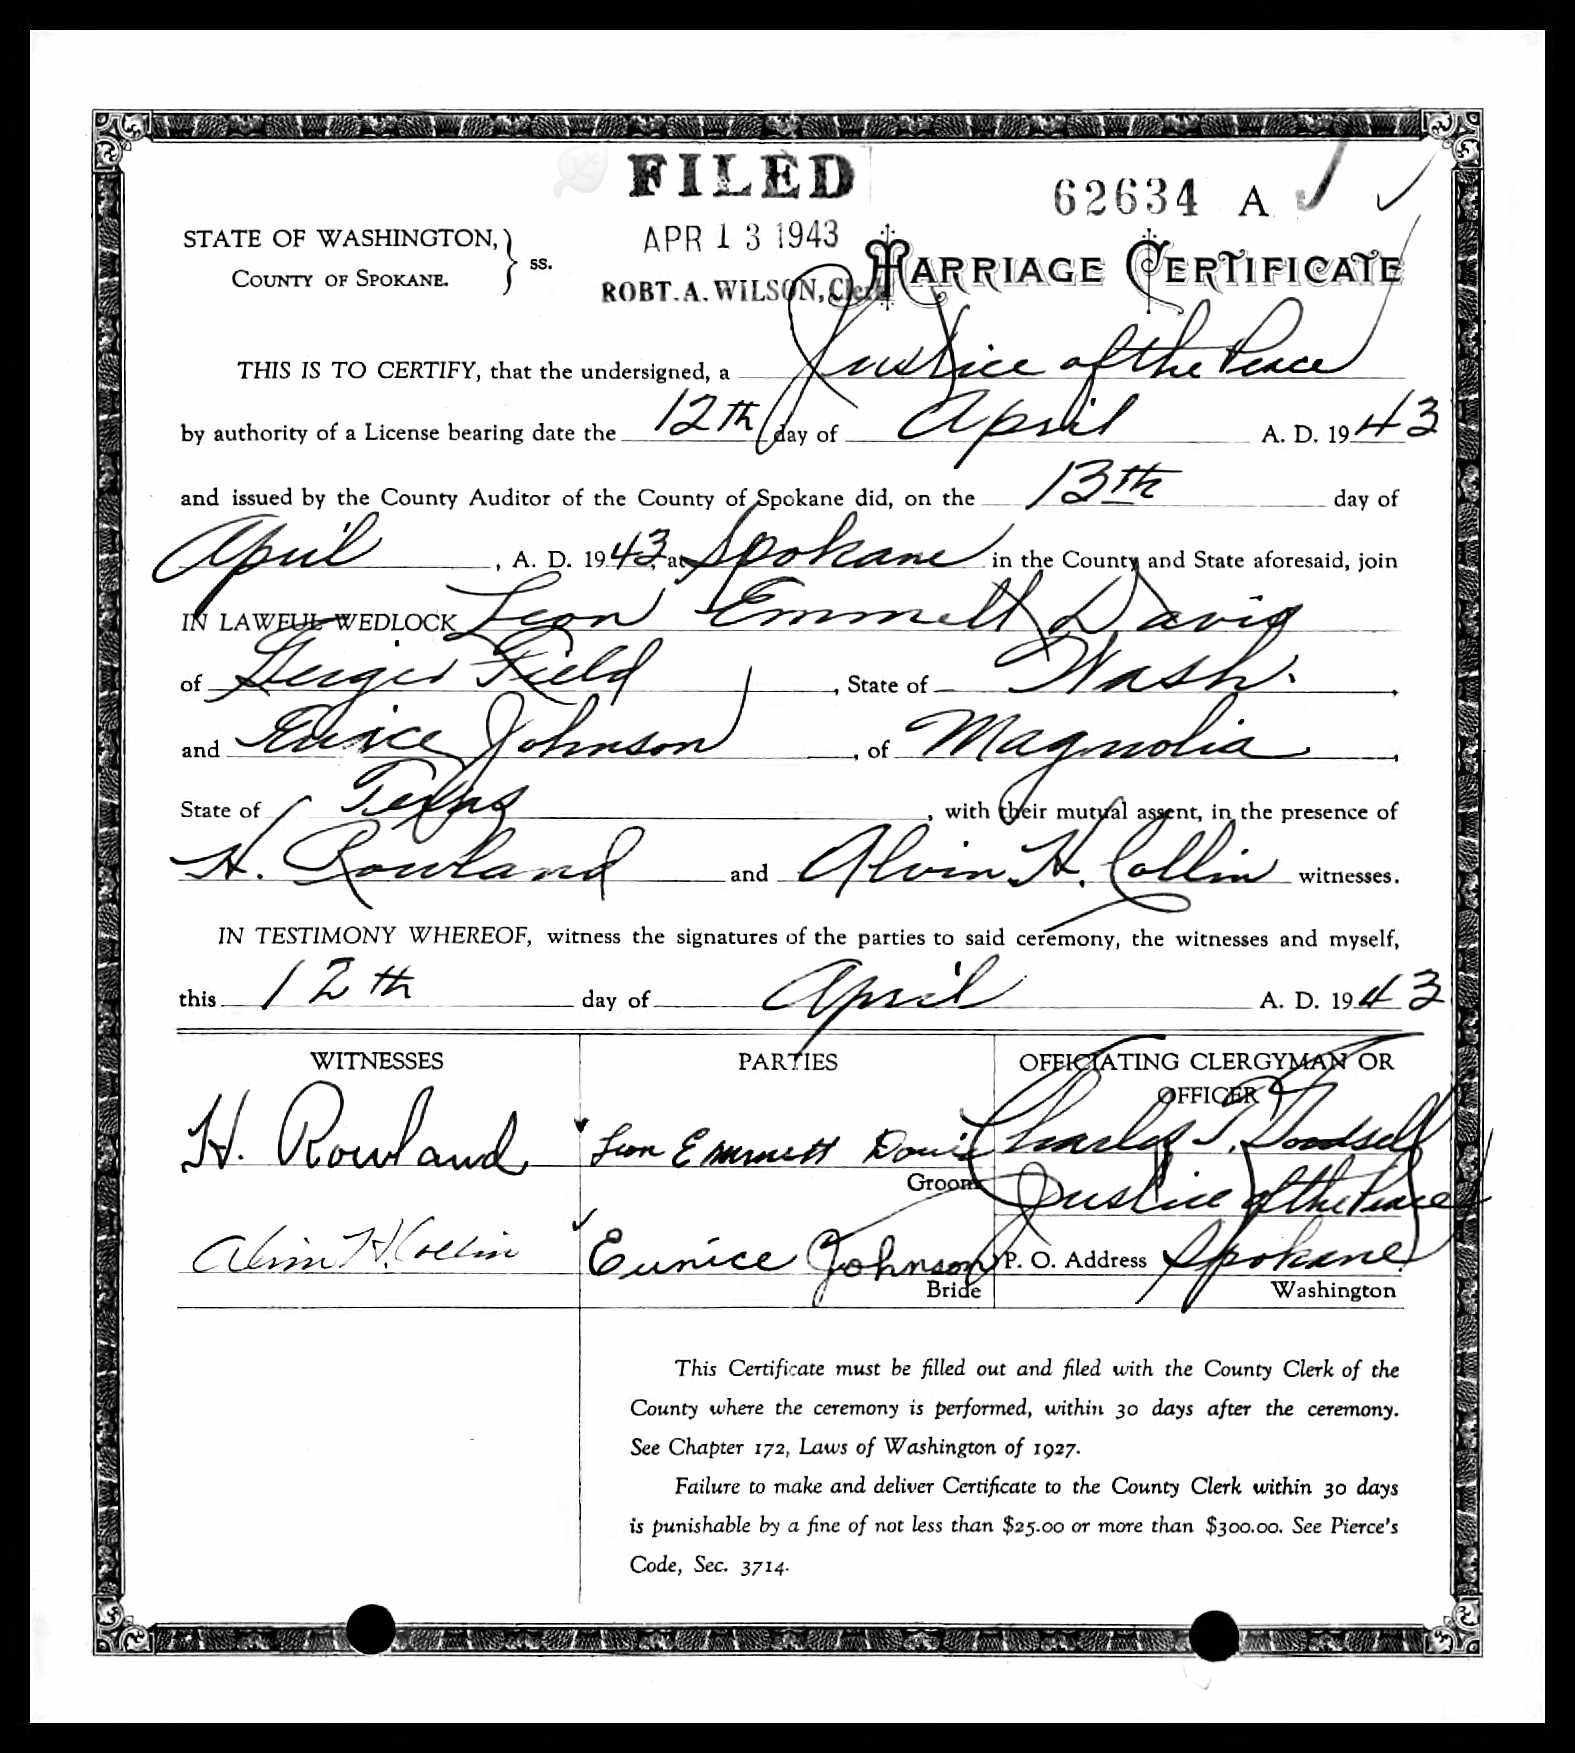 FILED
62634 A
STATE OF WASHINGTON,
COUNTY OF SPOKANE. } ss.
APR 13 1943
ROBT. A. WILSON, Clerk
MARRIAGE CERTIFICATE
THIS IS TO CERTIFY, that the undersigned, a Justice of the Peace
by authority of a License bearing date the 12th day of April A. D. 1943
and issued by the County Auditor of the County of Spokane did, on the 13th day of
April, A. D. 1943, at Spokane in the County and State aforesaid, join
IN LAWFUL WEDLOCK Leon Emmett Davis
of Geiger Field, State of Wash.
and Eunice Johnson, of Magnolia
State of Texas, with their mutual assent, in the presence of
H. Rowland and Alvin H. Collin witnesses.
IN TESTIMONY WHEREOF, witness the signatures of the parties to said ceremony, the witnesses and myself,
this 12th day of April A. D. 1943
WITNESSES
H. Rowland
Alvin H. Collin
PARTIES
Leon Emmett Davis
Groom
Eunice Johnson
Bride
OFFICIATING CLERGYMAN OR
OFFICER
Charles T. Goodsell
Justice of the Peace
P. O. Address Spokane
Washington
This Certificate must be filled out and filed with the County Clerk of the
County where the ceremony is performed, within 30 days after the ceremony.
See Chapter 172, Laws of Washington of 1927.
Failure to make and deliver Certificate to the County Clerk within 30 days
is punishable by a fine of not less than $25.00 or more than $300.00. See Pierce's
Code, Sec. 3714.